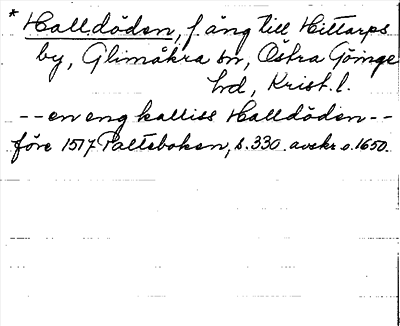 * Halldöden, f. äng till Hittarps
by, Glimåkra sn, Östra Göinge
hd, Krist. l.
-- en eng kalliss Halldöden --
före 1517 Palteboken, s. 330. avskr. o. 1650.